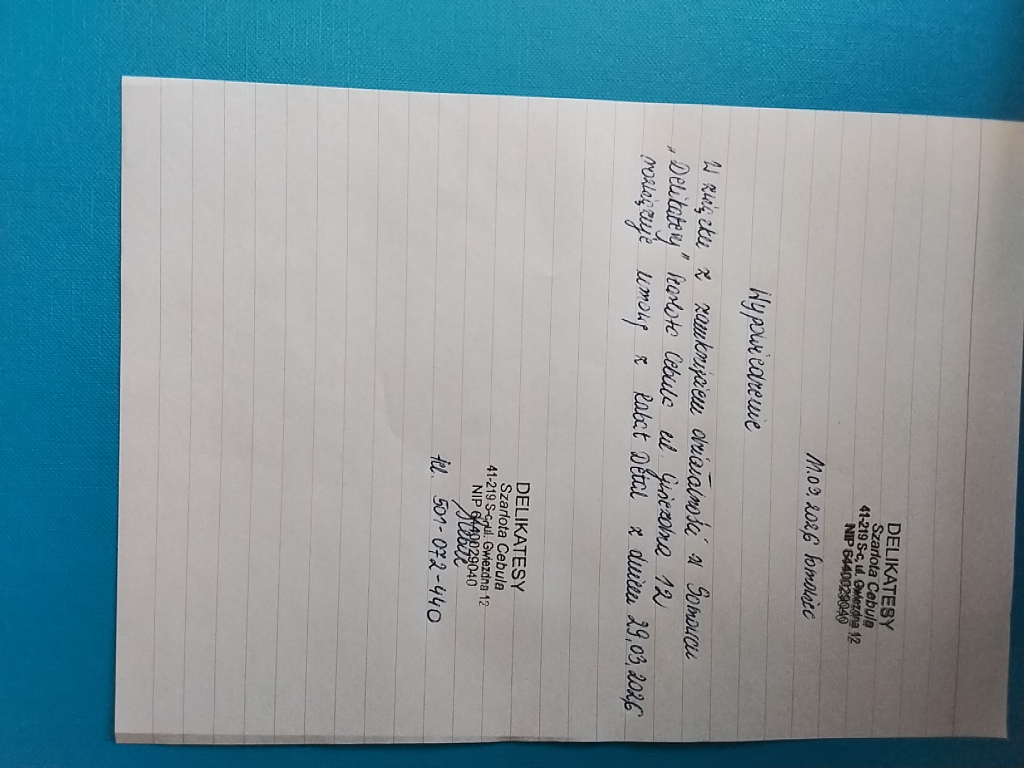 DELIKATESY
Szarlota Cebula
41-219 S-c, ul. Gwiezdna 12
NIP 6440029040
11.03.2026 Sosnowiec
Wypowiedzenie
W związku z zamknięciem działalności w Sosnowcu
„Delikatesy" Szarlota Cebula ul. Gwiezdna 12
rozwiązuję umowę z Rabat Detal z dniem 29.03.2026
DELIKATESY
Szarlota Cebula
41-219 S-c, ul. Gwiezdna 12
NIP 6440029040
tel. 501-072-440